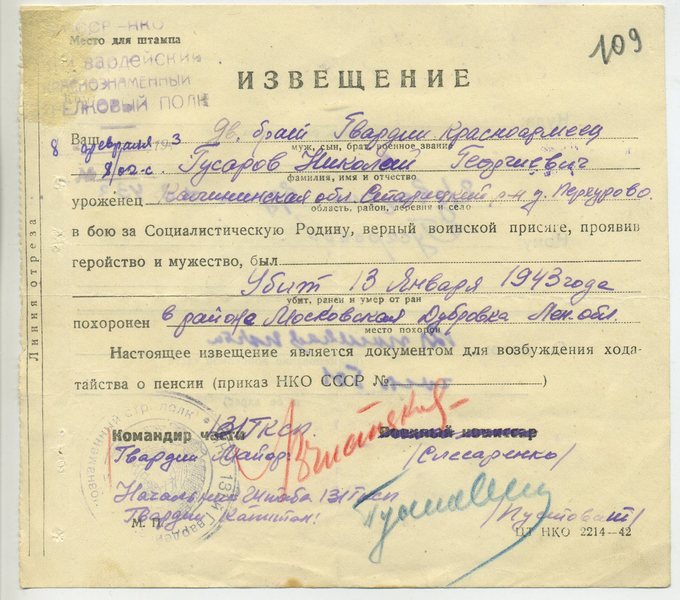 СССР-НКО
Место для штампа
Гвардейский
Краснознаменный
СТРЕЛКОВЫЙ ПОЛК
109
ИЗВЕЩЕНИЕ
8 февраля 1943
Ваш дв. брат Гвардии Красноармеец
муж, сын, брат, военное звание
Гусаров Николай Георгиевич
фамилия, имя и отчество
уроженец Калининская обл. Старицкий р-н д.
область, район, деревня и село
в бою за Социалистическую Родину, верный воинской присяге, проявив
геройство и мужество, был
Убит 13 Января 1943 года
убит, ранен и умер от ран
похоронен в районе Московская Дубровка Лен. обл.
место похорон
Настоящее извещение является документом для возбуждения хода-
тайства о пенсии (приказ НКО СССР №)
Линия отреза
Командир части 131 ГКСП
Военный комиссар
Гвардии Майор: /Слесаренко/
Начальник Штаба 131 ГКСП
Гвардии Капитан: /Пустовит/
М. П.
ЦЗ НКО 2214—42